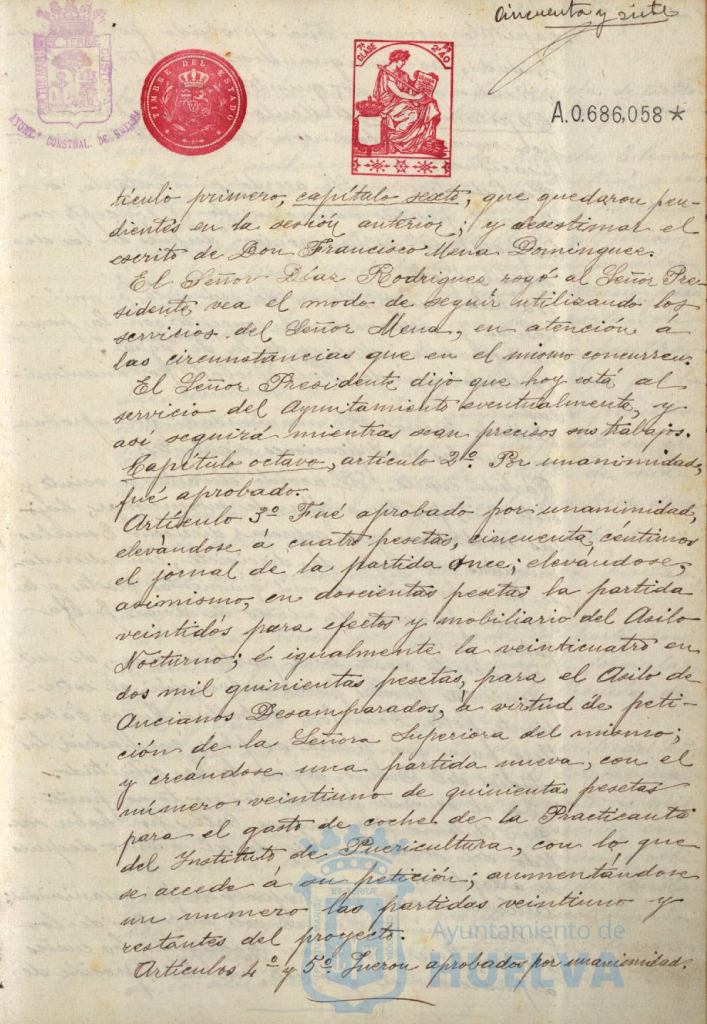 Cincuenta y siete
TIMBRE DEL ESTADO
7ª CLASE
A.0.686,058 *
AYUNT. CONSTNAL. DE HUELVA
tículo primero, capítulo sexto, que quedaron pen-
dientes en la sesión anterior; y desestimar el
escrito de Don Francisco Mena Dominguez.
El Señor Díaz Rodriguez rogó al Señor Pre-
sidente vea el modo de seguir utilizando los
servicios del Señor Mena, en atención a
las circunstancias que en el mismo concurren.
El Señor Presidente dijo que hoy está al
servicio del Ayuntamiento eventualmente, y
así seguirá mientras sean precisos sus trabajos.
Capítulo octavo, artículo 2º. Por unanimidad,
fué aprobado.
Artículo 3º Fué aprobado por unanimidad,
elevándose á cuatro pesetas, cincuenta céntimos
el jornal de la partida once; elevándose,
asimismo, en doscientas pesetas la partida
veintidós para efectos y mobiliario del Asilo
Nocturno; é igualmente la veinticuatro en
dos mil quinientas pesetas, para el Asilo de
Ancianos Desamparados, á virtud de peti-
ción de la Señora Superiora del mismo;
y creándose una partida nueva, con el
número veintiuno de quinientas pesetas
para el gasto de coche de la Practicante
del Instituto de Puericultura, con lo que
se accede á su petición; aumentándose
un numero las partidas veintiuno y
restantes del proyecto.
Artículos 4º y 5º. Fueron aprobados por unanimidad.
Ayuntamiento de
HUELVA